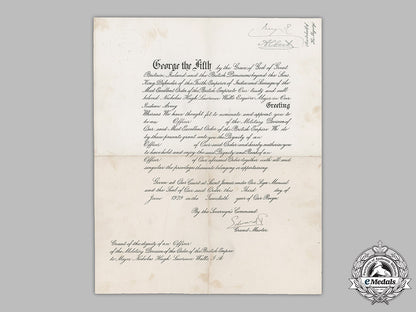 George the Fifth by the Grace of God of Great
Britain, Ireland and the British Dominions beyond the Seas
King, Defender of the Faith, Emperor of India and Sovereign of the
Most Excellent Order of the British Empire to Our trusty and well
beloved Nicholas Hugh Lawrence Watts Esquire, Major in Our
Indian Army
Greeting
Whereas We have thought fit to nominate and appoint you to
be an Officer of the Military Division of
Our said Most Excellent Order of the British Empire We do
by these presents grant unto you the Dignity of an
Officer of Our said Order and hereby authorise you
to have hold and enjoy the said Dignity and Rank of an
Officer of Our aforesaid Order together with all and
singular the privileges thereunto belonging or appertaining.
Given at Our Court at Saint James's under Our Sign Manual
and the Seal of Our said Order this Third day of
June 1929 in the Twentieth year of Our Reign.
By the Sovereign's Command.
Grand Master.
Grant of the dignity of an Officer
of the Military Division of the Order of the British Empire
to Major Nicholas Hugh Lawrence Watts I.A.
eMedals